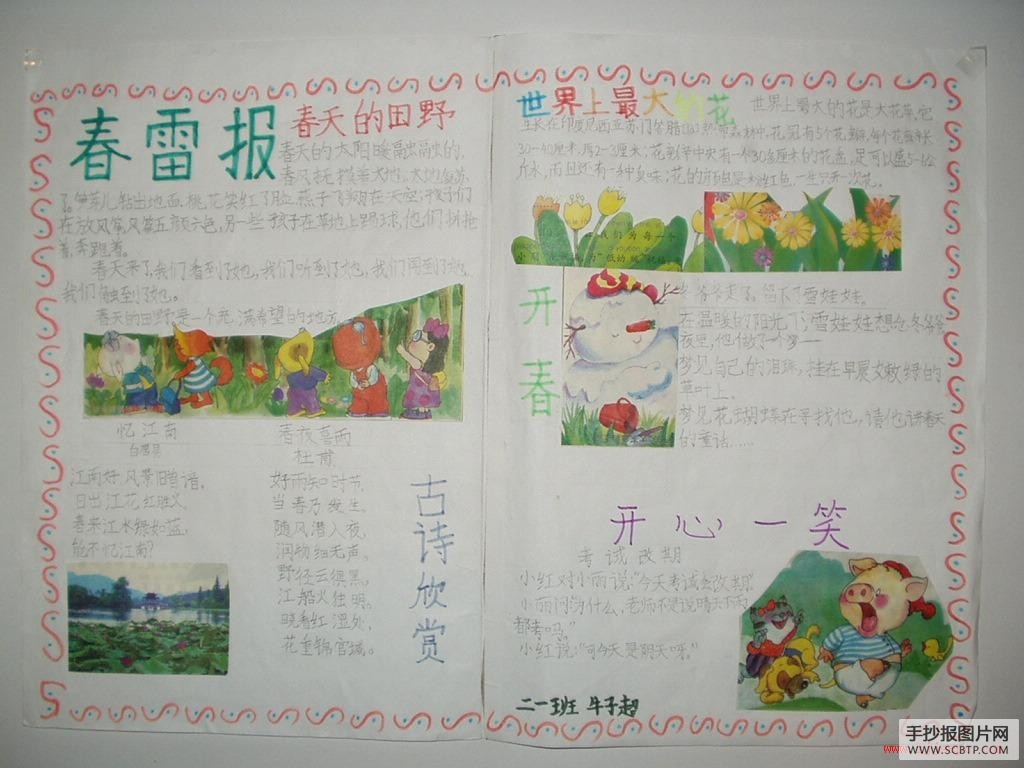 春雷报
春天的田野
春天的太阳暖融融的,
春风抚摸着大地,大地复苏
了。笋芽儿钻出地面,桃花笑红了脸,燕子飞翔在天空,孩子们
在放风筝,风筝五颜六色,另一些孩子在草地上踢球,他们
着,奔跑着。
春天来了,我们看到了她,我们听到了她,我们闻到了她,
我们触到了她。
春天的田野是一个充满希望的地方。
忆江南
白居易
江南好,风景旧曾谙。
日出江花红胜火,
春来江水绿如蓝,
能不忆江南?
春夜喜雨
杜甫
好雨知时节,
当春乃发生。
随风潜入夜,
润物细无声。
野径云俱黑,
江船火独明。
晓看红湿处,
花重锦官城。
古诗欣赏
世界上最大的花
世界上最大的花是大花草,它
生长在印度尼西亚苏门答腊的热带森林中,花冠有5个花瓣,每个花瓣长
30-40厘米,厚2-3厘米;花的中央有一个30多厘米的花盘,足可以盛5-6公
斤水,而且还有一种臭味;花的颜色是粉红色,一生只开一次花。
我们为每一个
开春
爷爷走了,留下了雪娃娃。
在温暖的阳光下,雪娃娃想念冬爷爷
夜里,他做了一个梦——
梦见自己的泪珠,挂在早晨嫩绿的
草叶上。
梦见花蝴蝶在寻找他,请他讲春天
的童话……
开心一笑
考试改期
小红对小丽说:“今天考试会改期”。
小丽问:“为什么,老师不是说晴天下雨
都考吗。”
小红说:“可今天是阴天呀。”
二一班 牛子超
手抄报图片网
WWW.SCBTP.COM